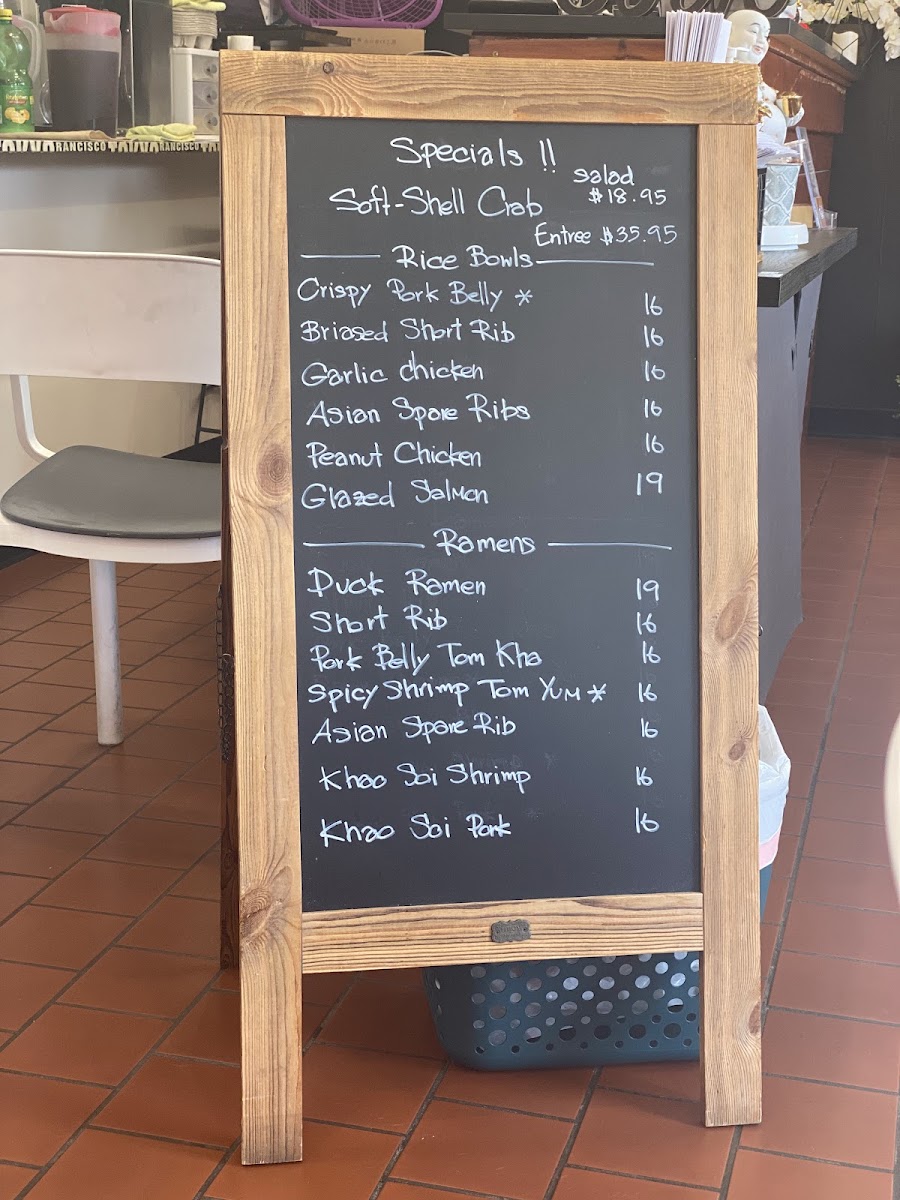 RANCISCO
RANCISCO
Specials !!
Soft-Shell Crab
Salad
$18.95
Entree $35.95
Rice Bowls
Crispy Pork Belly * 16
Briased Short Rib 16
Garlic chicken 16
Asian Spare Ribs 16
Peanut Chicken 16
Glazed Salmon 19
Ramens
Duck Ramen 19
Short Rib 16
Pork Belly Tom Kha 16
Spicy Shrimp Tom Yum * 16
Asian Spare-Rib 16
Khao Soi Shrimp 16
Khao Soi Pork 16